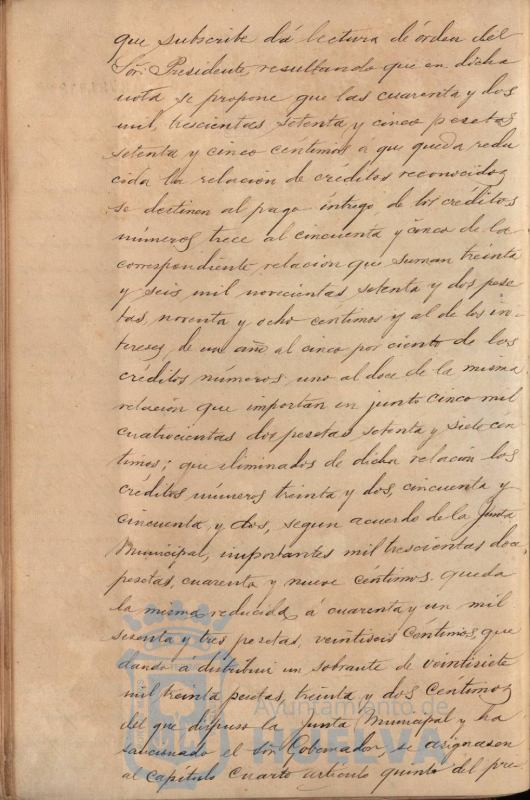 que subscribe dá lectura de órden del
Sor. Presidente, resultando que en dicha
nota se propone que las cuarenta y dos
mil, trescientas setenta y cinco pesetas
setenta y cinco centimos á que queda redu
cida la relación de créditos reconocidos
se destinen al pago integro, de los créditos
números trece al cincuenta y cinco de la
correspondiente relación que suman treinta
y seis mil novecientas setenta y dos pese
tas, noventa y ocho centimos y al de los in-
tereses, de un año al cinco por ciento de los
créditos números, uno al doce de la misma
relación que importan en junto cinco mil
cuatrocientas dos pesetas setenta y siete cen
timos; que eliminados de dicha relación los
créditos números treinta y dos, cincuenta y
cincuenta y dos, segun acuerdo de la Junta
Municipal, importantes mil trescientas doce
pesetas, cuarenta y nueve céntimos queda
la misma reducida á cuarenta y un mil
sesenta y tres pesetas, veintiseis Céntimos, que
dando á distribuir un sobrante de veintisiete
mil treinta pesetas, treinta y dos Céntimos
del que dispuso la Junta Municipal y ha
sancionado el Sor. Gobernador, se asignasen
al Capítulo Cuarto artículo quinto del pre
Ayuntamiento de
HUELVA